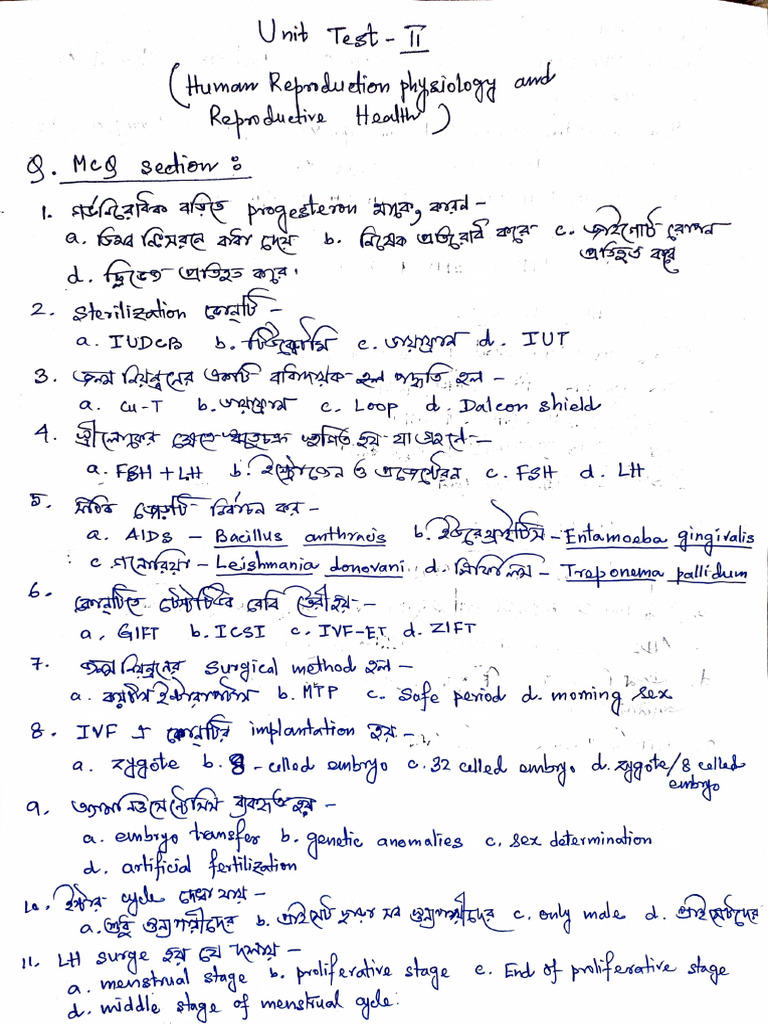 Unit Test - II
(Human Reproduction physiology and
Reproductive Health)
Q. MCQ section :
1. গর্ভনিরোধক বড়িতে progesteron থাকে, কারন -
a. ডিম্ব নিঃসরনে বাধা দেয় b. নিষেক প্রতিরোধ করে c. জাইগোট রোপন
প্রতিহত করে
d. ক্লিভেজ প্রতিহত করে।
2. Sterilization কোনটি -
a. IUDCB b. টিউবেক্টোমি c. ডায়াফ্রাম d. IUT
3. জন্ম নিয়ন্ত্রনের একটি হল পদ্ধতি হল -
a. Cu-T b. ডায়াফ্রাম c. Loop d. Dalcon shield
4. স্ত্রীলোকের ক্ষেত্রে ঋতুচক্র হয় যা গ্রহনে -
a. FSH + LH b. ইস্ট্রোজেন ও প্রজেস্টেরন c. FSH d. LH
5. সঠিক জোড়টি নির্বাচন কর -
a. AIDS - Bacillus anthracis b. ইউরেথ্রাইটিস - Entamoeba gingivalis
c. গনোরিয়া - Leishmania donovani d. সিফিলিস - Treponema pallidum
6. কোনটিতে টেস্টটিউব বেবি তৈরী হয় -
a. GIFT b. ICSI c. IVF-ET d. ZIFT
7. জন্ম নিয়ন্ত্রনের surgical method হল -
a. কয়টাস ইন্টারাপটাস b. MTP c. safe period d. morning sex
8. IVF এ কোনটির implantation হয় -
a. zygote b. 8 - celled embryo c. 32 celled embryo d. zygote/8 celled
embryo
9. অ্যামনিওসেন্টেসিস ব্যবহৃত হয় -
a. embryo transfer b. genetic anomalies c. sex determination
d. artificial fertilization
10. ইস্টার cycle দেখা যায় -
a. শুধু স্তন্যপায়ীদের b. প্রাইমেট ছাড়া সব স্তন্যপায়ীদের c. only male d. প্রাইমেটদের
11. LH surge হয় যে দশায় -
a. menstrual stage b. proliferative stage c. End of proliferative stage
d. middle stage of menstrual cycle.